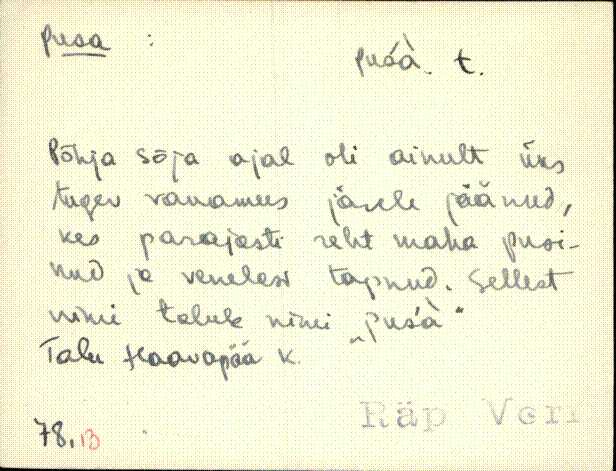 pusa :
puśà. t.
Põhja sõja ajal oli ainult üks
tugev vanamees järele jäänud,
kes parajasti reht maha pusi-
nud ja venelasi tapnud. Sellest
nimi talule nimi „puśà"
Talu Haavapää k.
78. B
Räp Veri